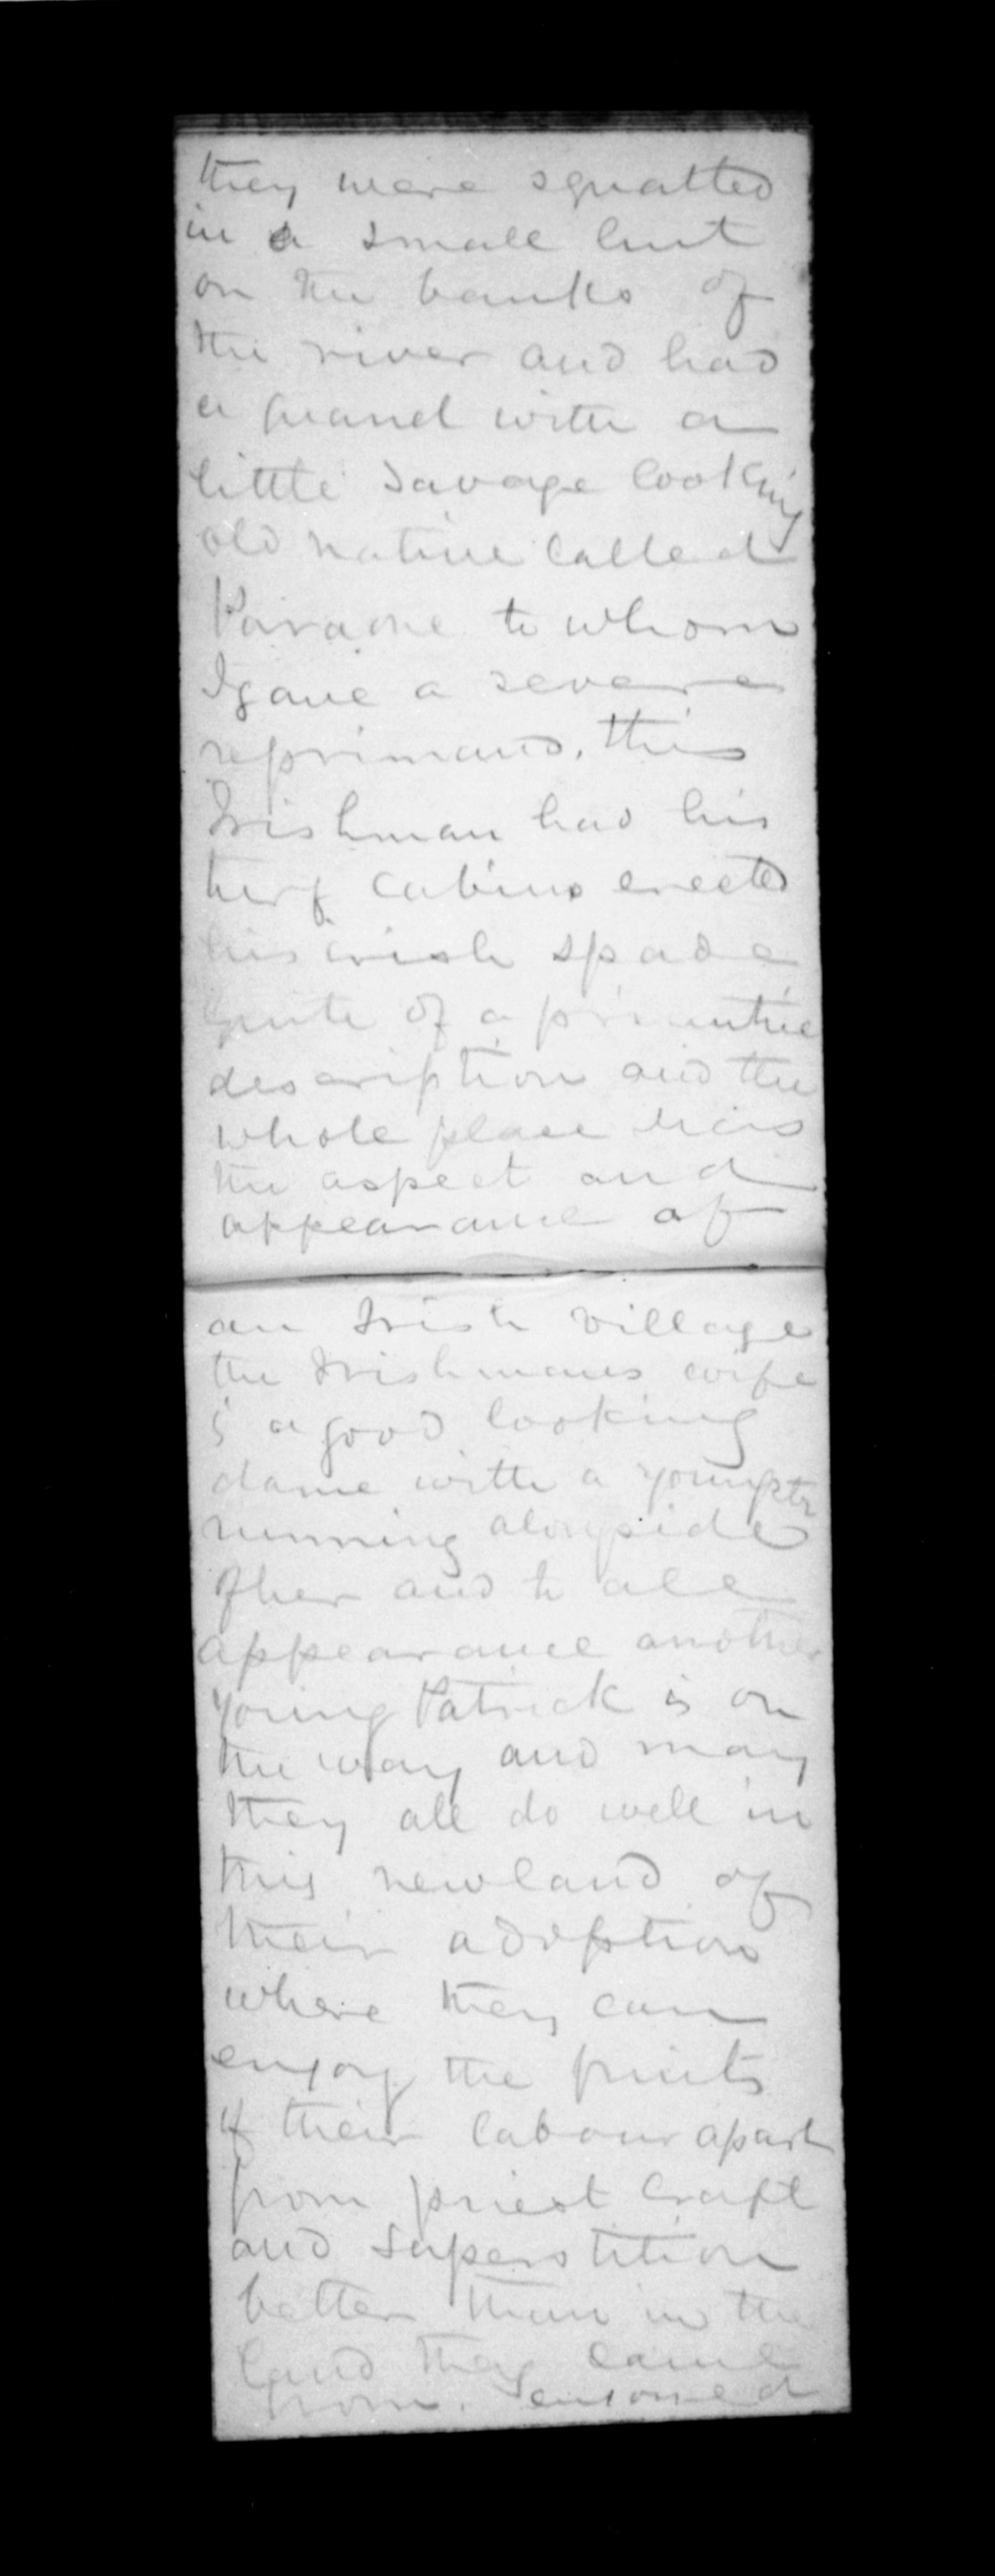 they were squatted
in a small hut
on the banks of
the river and had
a quarrel with a
little savage looking
old native called
Paraone to whom
I gave a severe
reprimand. this
Irishman had his
turf cabins erected
his irish spade
quite of a primitive
description and the
whole place has
the aspect and
appearance of
an Irish village
the Irishmans wife
is a good looking
dame with a youngster
running alongside
of her and to all
appearance another
young Patrick is on
the way and may
they all do well in
this new land of
their adoption
where they can
enjoy the fruits
of their labour apart
from priest craft
and superstition
better than in the
land they came
from. I enjoyed